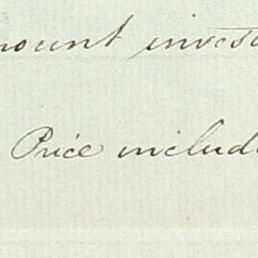 mount invest
Price includ